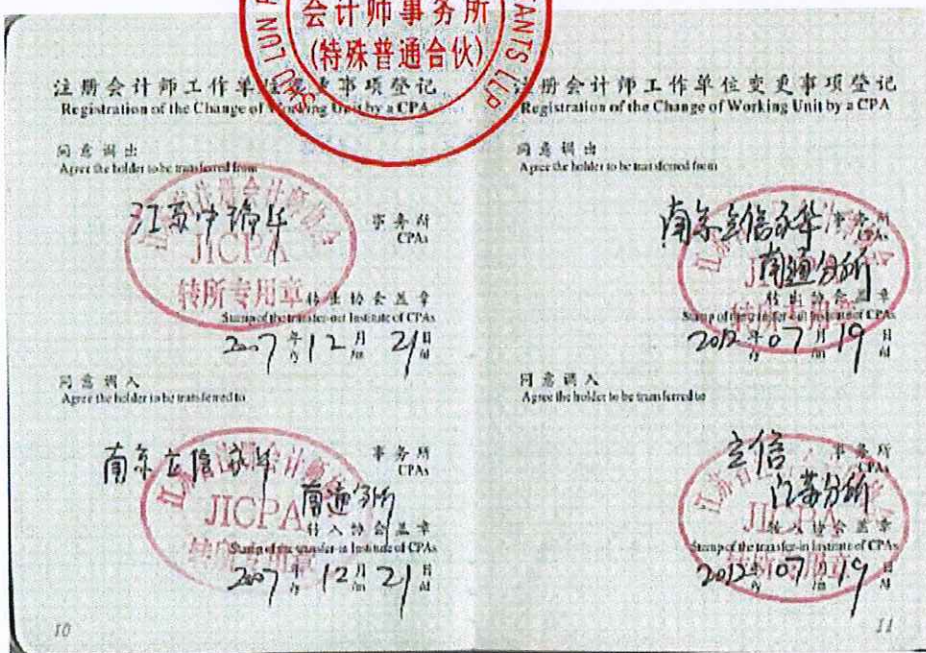 会计师事务所
(特殊普通合伙)
注册会计师工作单位变更事项登记
Registration of the Change of Working Unit by a CPA
同意调出
Agree the holder to be transferred from
江苏中瑞华
事务所
CPAs
JICPA
转所专用章
转出协会盖章
Stamp of the transfer-out Institute of CPAs
2007年12月21日
/y /m /d
同意调入
Agree the holder to be transferred to
南京立信永华
事务所
CPAs
南通分所
JICPA
转入协会盖章
Stamp of the transfer-in Institute of CPAs
2007年12月21日
/y /m /d
10
注册会计师工作单位变更事项登记
Registration of the Change of Working Unit by a CPA
同意调出
Agree the holder to be transferred from
南京立信永华 事务所
CPAs
南通分所
转出协会盖章
Stamp of the transfer-out Institute of CPAs
2012年07月19日
/y /m /d
同意调入
Agree the holder to be transferred to
立信 事务所
CPAs
江苏分所
JICPA
转入协会盖章
Stamp of the transfer-in Institute of CPAs
2012年07月19日
/y /m /d
11